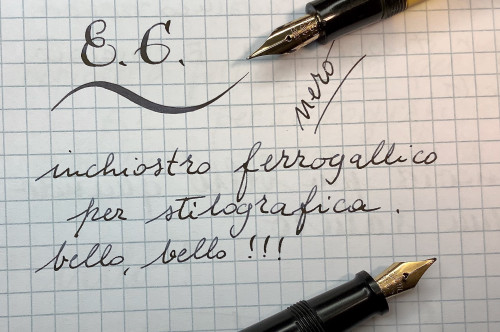 E. C.
nero
inchiostro ferrogallico
per stilografica.
bello, bello !!!